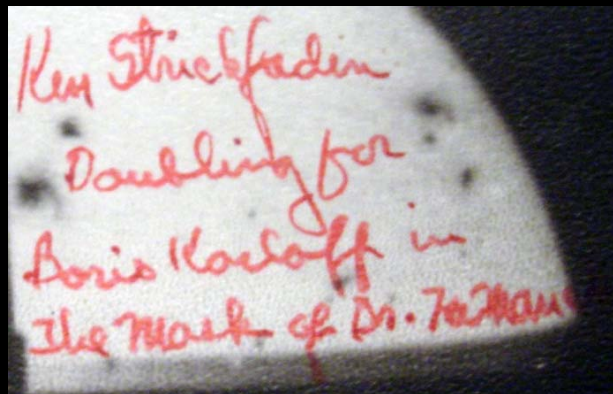 Ken Strickfaden
Doubling for
Boris Karloff in
The Mask of Dr. Fu Manc